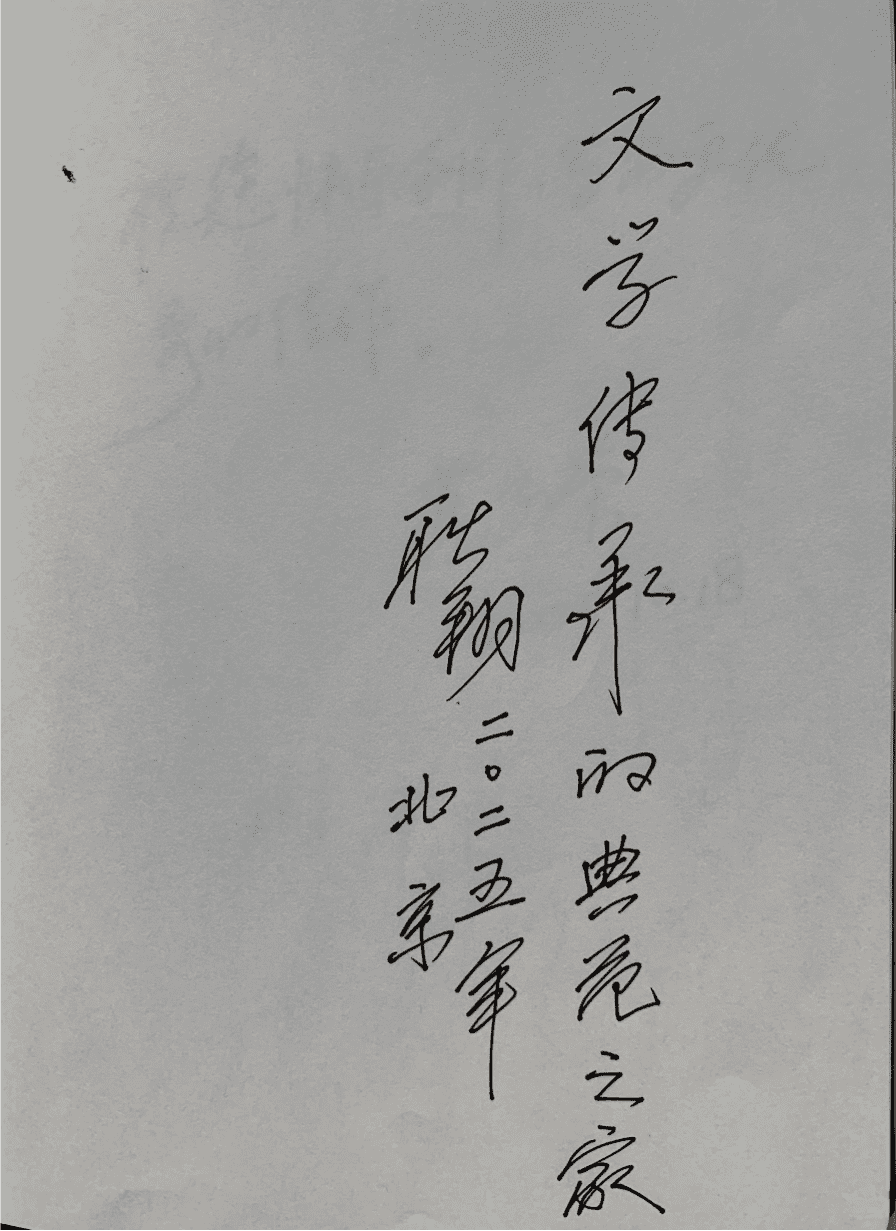 文学传承的典范之家
耿翔
二〇二五年
北京